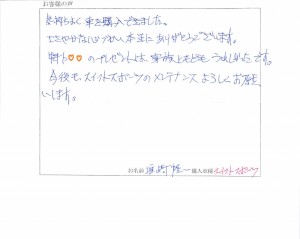 お客様の声
気持ちよく車を購入できました。
本当にありがとうございます。
特に のプレゼントは、家族ともどもうれしかったです。
今後も、スイフトスポーツのメンテナンスよろしくお願
いします。
お名前 一 購入車種 スイフトスポーツ